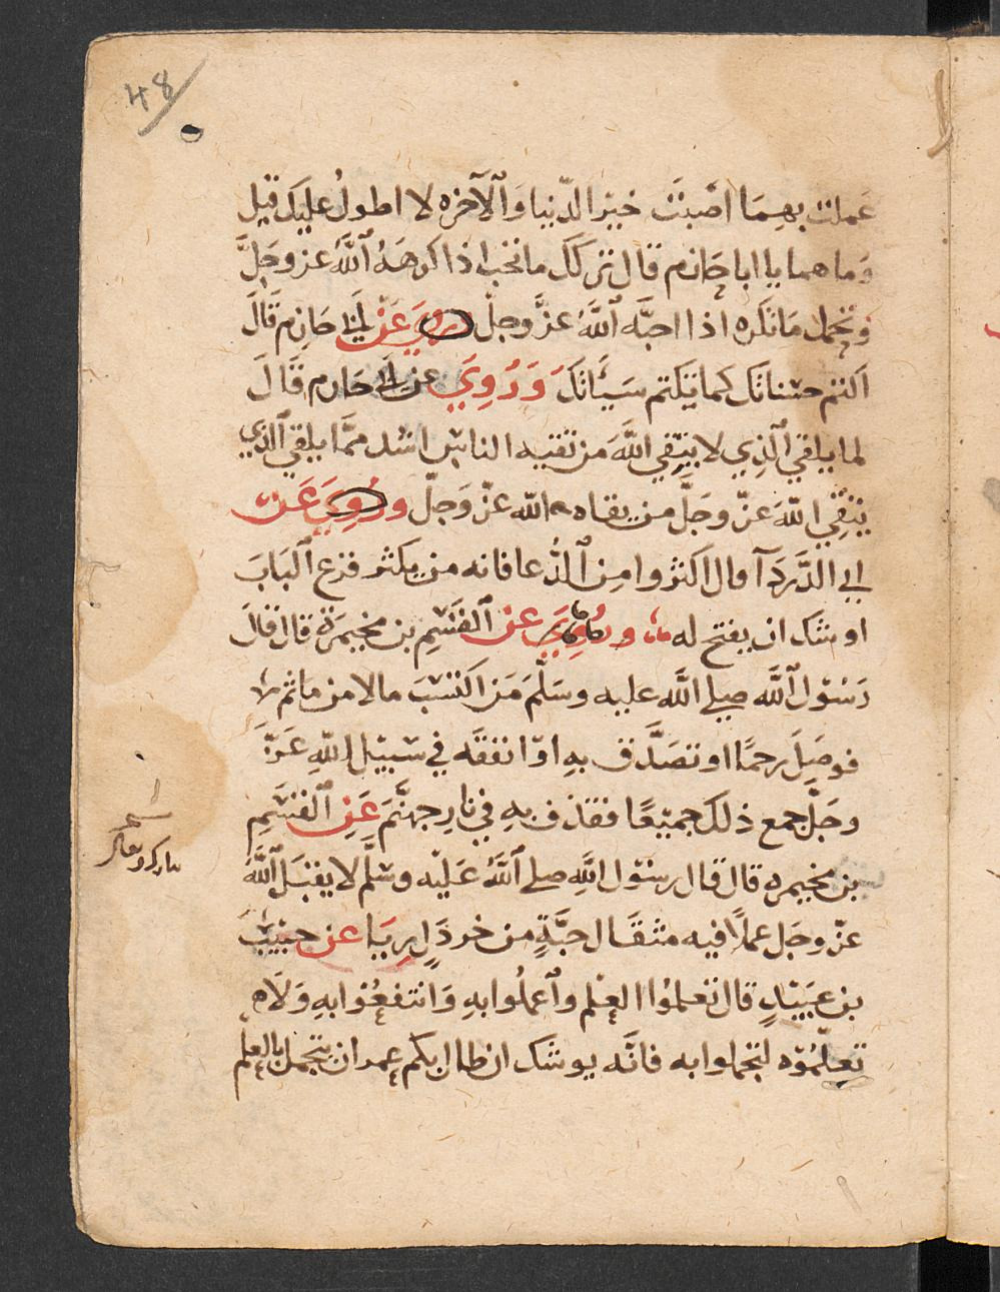 48
عَملت بهِمَا اصَبتَ خيرَ الدّنيا وَالآخره لا اطولُ عليَك قيل
وَما هما يا ابا حَازم قال تركك ما تحب اذا كرهَهُ اللَّهُ عز وجلَّ
وتحمل مَا تكره اذا احبَّه اللَّهُ عزَّ وجلّ ورُويَ عَنْ ابي حَازِم قَالَ
اكتم حسناتك كما تكتم سَيّاتكَ وَرُوِيَ عن ابي حَازم قَالَ
لما يلقي الَّذِي لا يتّقِي اللَّهَ من تقيه الناس اشد ممَّا يلقي الذِي
يتقِي اللّهَ عزّ وجَلّ من تقاه الله عزّ وَجلّ ورُوِيَ عَن
ابي الدَّردَآ قال اكثروا مِن الدُّعا فانه من يكثر قرع البَابَ
اوشك ان يفتح له ورُوِيَ عن القَسِم بن مخيمرَة قال قالَ
رَسُول اللَّه صلي اللَّه عليه وسَلّمَ مَن اكتسَبَ مالا من ماثم
فوصَلَ رحِمًا او تصَدَّق بهِ او انفقَه في سَبيل اللّهِ عَزّ
وجَلّ جمع ذلك جميعًا فقذف بهِ في نارِ جهنَّمَ عَنِ القَسَمِ
بن مخيمره قال قال رسُول اللَّهِ صلي اللَّهُ عَليْه وسَلّم لا يقبَل اللَّهُ
عزّ وجَل عملًا فيه مثقَال حبَّةٍ من خردَلٍ رِيَا عن حبيبَ
بن عبَيْدٍ قال تعلمُوا العِلم واعملُوا بهِ وَانتفعُوا بهِ وَلَا
تعلّمُوْه لتجملوا به فانَّه يوشك ان طال بكم عِمر ان يتجمل بالعِلم